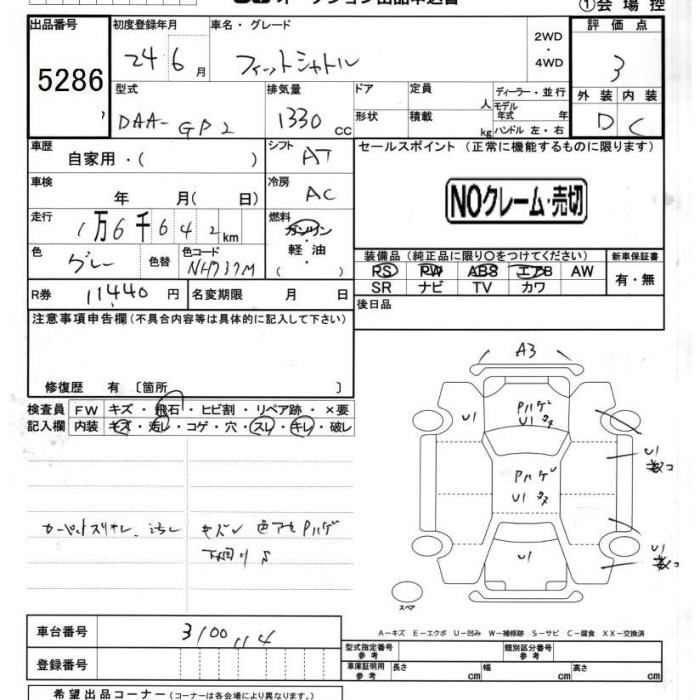 ①会場控
出品番号 初度登録年月 車名・グレード 2WD ・ 4WD 評価点
5286 24 6月 フィットシャトル 3
型式 排気量 ドア 定員 人 ディーラー・並行 外装 内装
DAA-GP2 1330 cc 形状 積載 kg モデル年式 年 ハンドル 左・右 D C
車歴 自家用・( ) シフト AT セールスポイント (正常に機能するものに限ります)
車検 年 月( 日) 冷房 AC NOクレーム・売切
走行 1万6千642km 燃料 ガソリン・軽油 ( )
色 グレー 色替 色コード NH737M 装備品(純正品に限り〇をつけてください) 新車保証書
PS PW ABS エアB AW 有・無
R券 11,440円 名変期限 月 日 SR ナビ TV カワ
注意事項申告欄(不具合内容等は具体的に記入して下さい) 後日品
修復歴 有 〔箇所 〕
A3
検査員 FW キズ・飛石・ヒビ割・リペア跡・×要
記入欄 内装 キズ・汚レ・コゲ・穴・スレ・キレ・破レ
U1 Pハゲ
U1
U1
Pハゲ
U1
U1
U1
スペア
A-キズ E-エクボ U-凹み W-補修跡 S-サビ C-腐食 XX-交換済
車台番号 3100114
型式指定番号 参考 類別区分番号 参考
登録番号 車庫証明用 参考 長さ cm 幅 cm 高さ cm
希望出品コーナー(コーナーは各会場により異なります。)